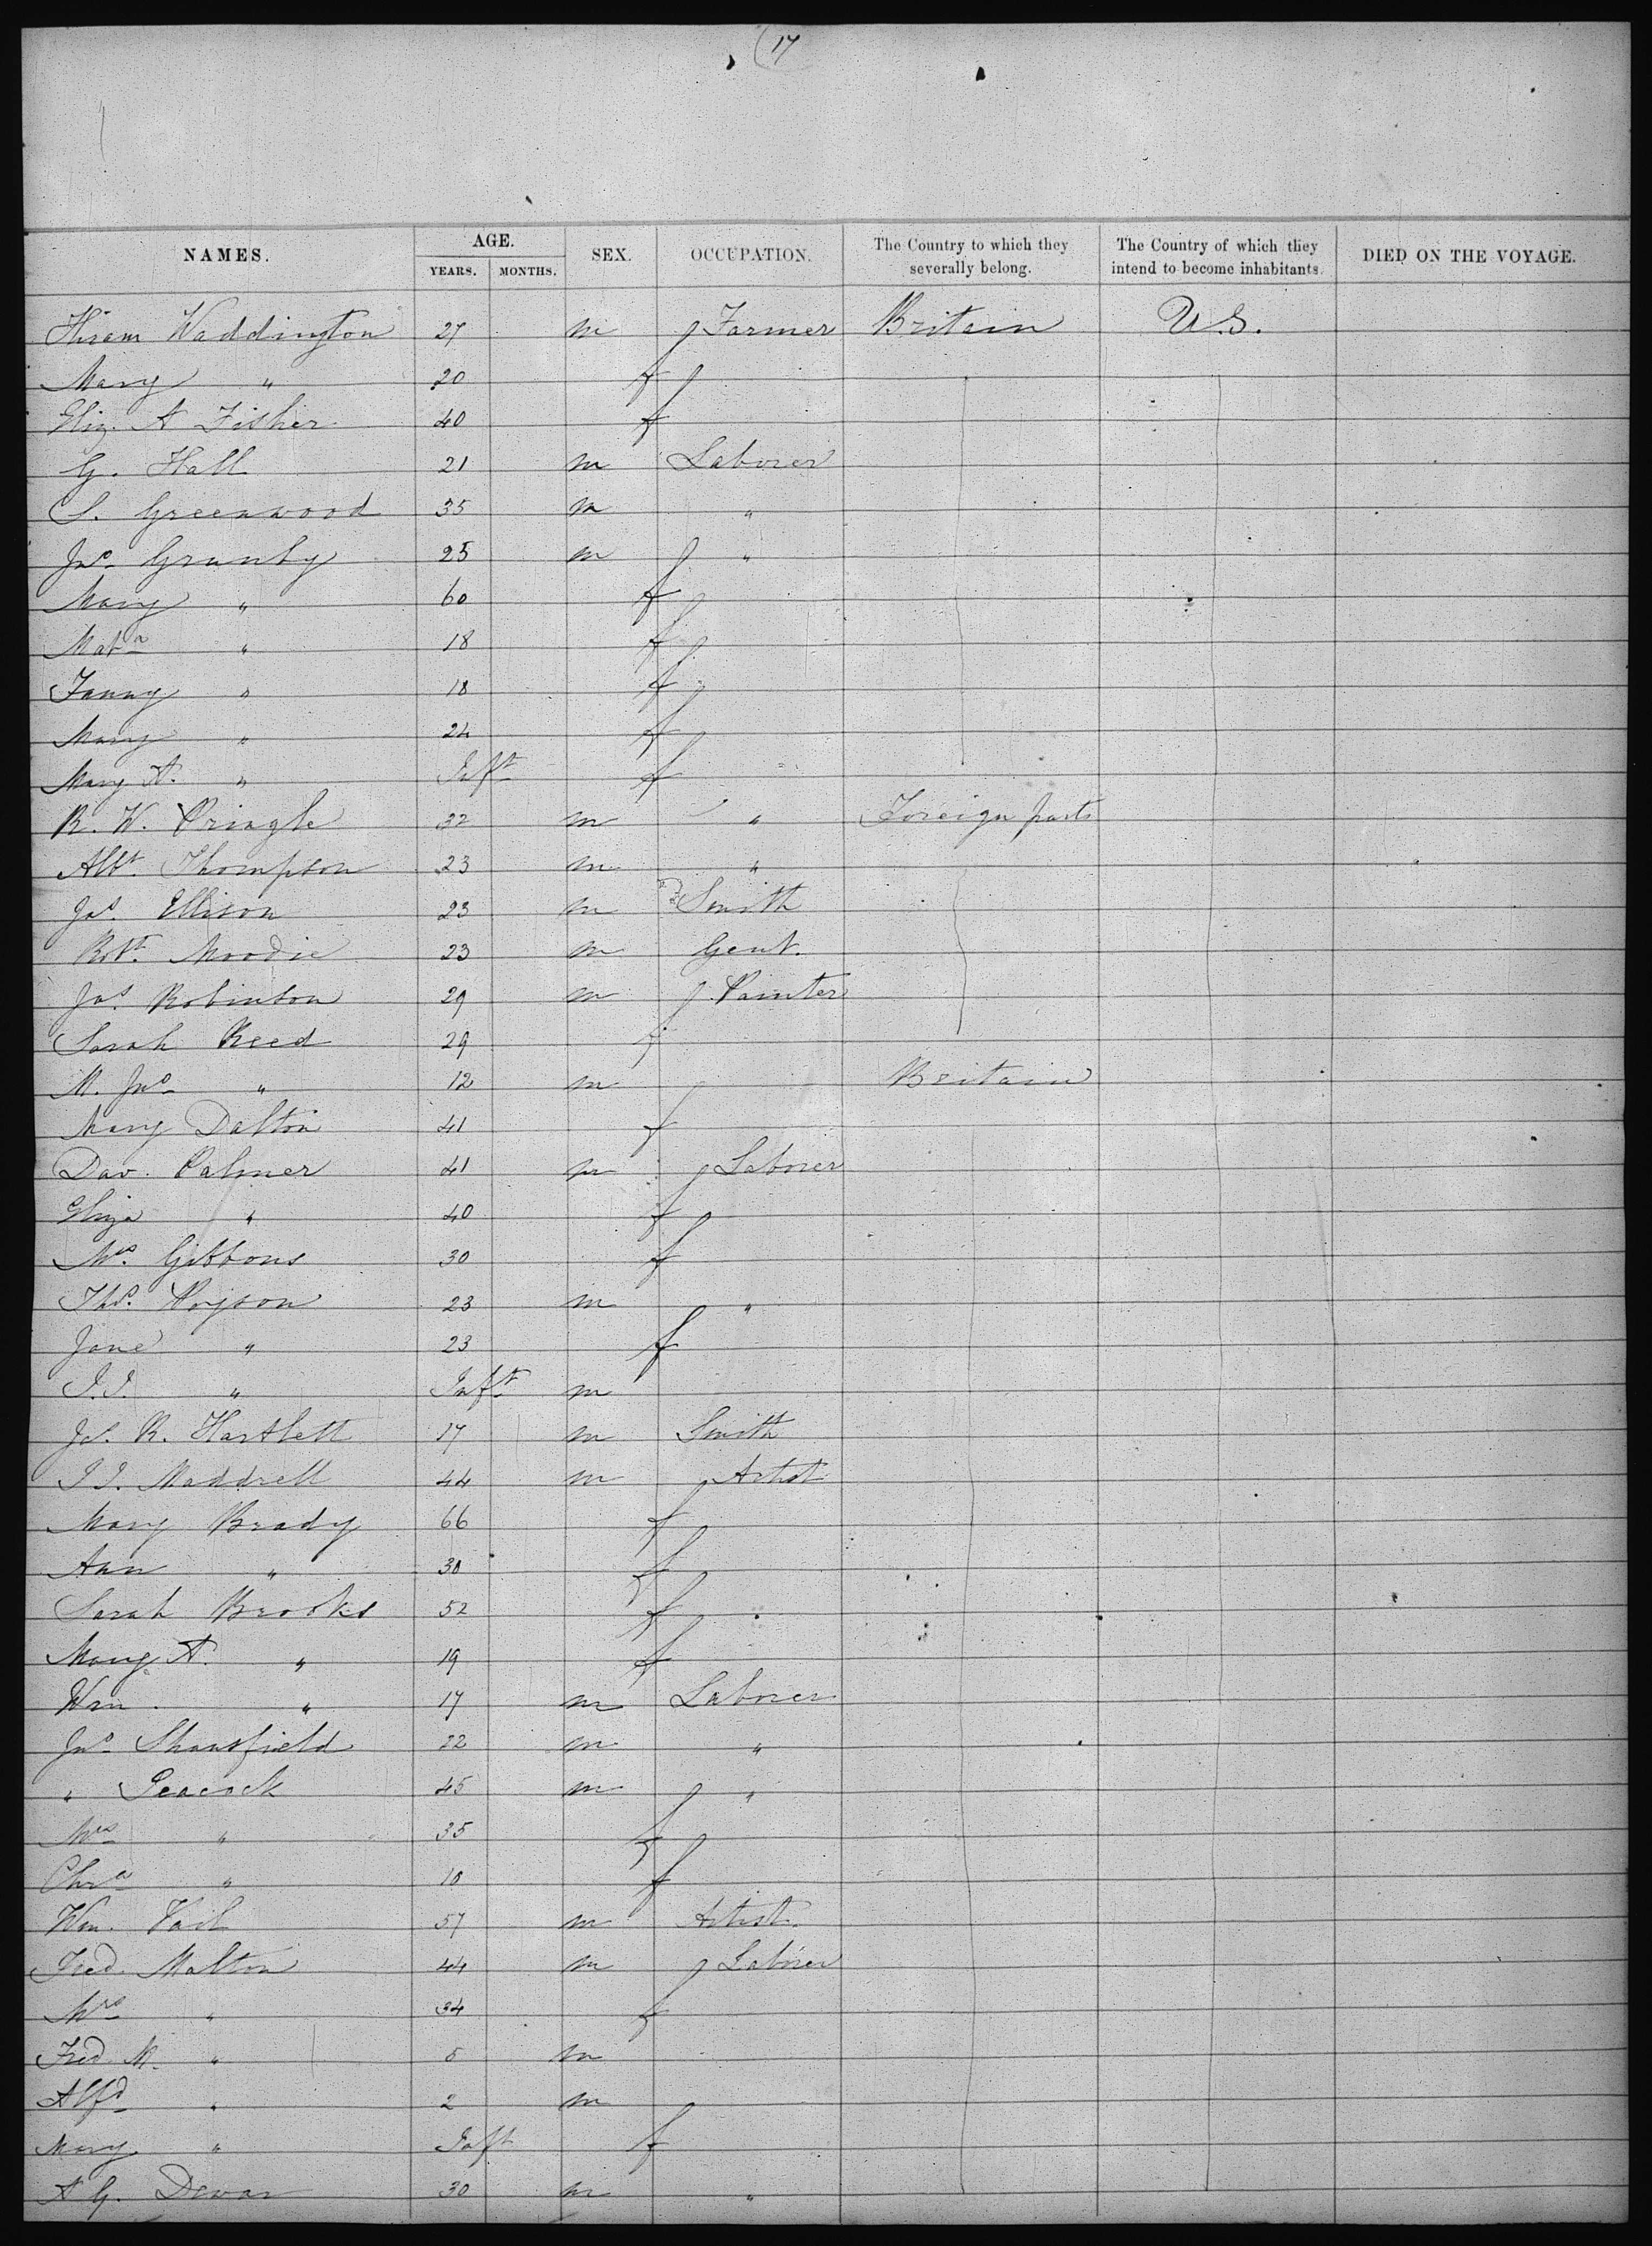 17
NAMES. AGE. SEX. OCCUPATION. The Country to which they severally belong. The Country of which they intend to become inhabitants. DIED ON THE VOYAGE.
YEARS. MONTHS.
Hiram Waddington 27 m Farmer Britain U.S.
Mary " 20 f
Eliz. A Fisher 40 f
G. Hall 21 m Laborer
S. Greenwood 35 m "
Jno Granby 25 m "
Mary " 60 f
Mata " 18 f
Fanny " 18 f
Mary " 24 f
Mary A. " Inft f
R. W. Pringle 32 m " Foreign parts
Albt. Thompson 23 m "
Jas. Ellison 23 m Smith
Robt. Moodie 23 m Gent.
Jas. Robinson 29 m Painter
Sarah Reed 29 f
M. Jno " 12 m Britain
Mary Dalton 41 f
Dav. Palmer 41 m Laborer
Eliza " 40 f
Mrs Gibbons 30 f
Thos. Poyson 23 m "
Jane " 23 f
J.J. " Inft m
Js. R. Hartlett 17 m Smith
J J. Maddrell 44 m Artist
Mary Brady 66 f
Ann " 30 f
Sarah Brooks 52 f
Mary A. " 19 f
Wm. " 17 m Laborer
Jno Shansfield 22 m "
" Peacock 45 m "
Mrs " 35 f
Chra " 10 f
Wm. Vail 57 m Artist.
Fred. Malton 44 m Laborer
Mrs " 34 f
Fred. M. " 5 m
Alfd " 2 m
Mary " Inft f
A G. Dewar 30 m "